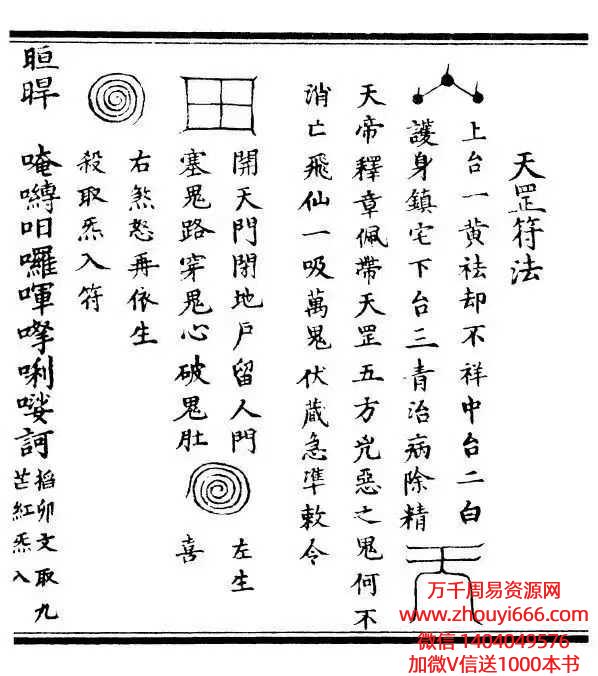 天罡符法
上台一黄祛却不祥中台二白
護身鎮宅下台三青治病除精
天帝釋章佩帶天罡五方兇惡之鬼何不
消亡飛仙一吸萬鬼伏藏急準敕令
開天門閉地戶留人門
塞鬼路穿鬼心破鬼肚
左生
喜
右煞怒再依生
殺取炁入符
唵嚩吅囉㗲㘈唎㘇訶
搯卯文取九
芒紅炁入
万千周易资源网
www.zhouyi666.com
微信 1404049576
加微V信送1000本书